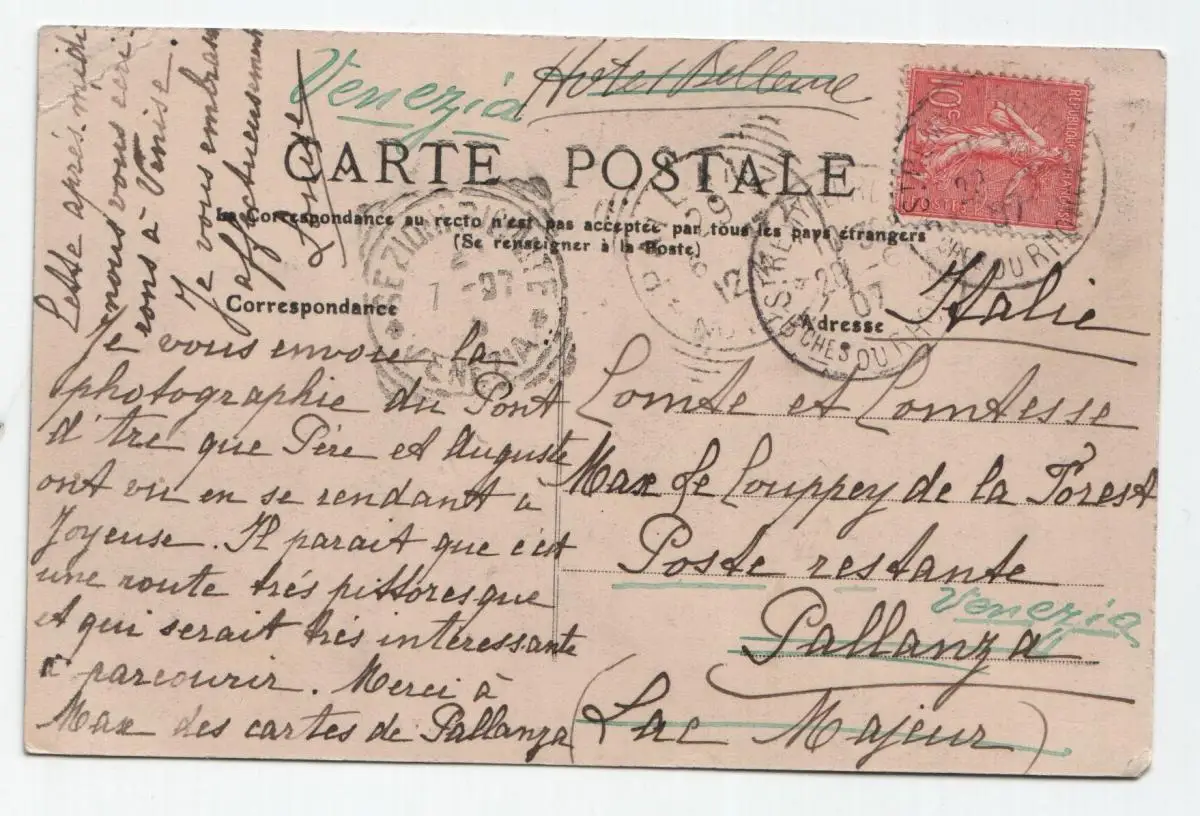 Venezia
Hotel Bellevue
10c
REPUBLIQUE FRANÇAISE
POSTES
CARTE POSTALE
La Correspondance au recto n'est pas acceptée par tous les pays étrangers
(Se renseigner à la Poste)
Correspondance
Adresse
SEZIONE
VENEZIA
29
12
20
07
BCHES DU RHONE
Je vous envoie la
photographie du Pont
d'
que Père et Auguste
ont vu en se rendant à
Joyeuse. Il parait que c'est
une route très pittoresque
et qui serait très intéressante
à parcourir. Merci à
Max des cartes de Pallanza
Cette après-midi
nous vous écri-
rons à Venise.
Je vous embrasse
affectueusement
Louise
Italie
Comte et Comtesse
Max de Louppey de la Forest
Poste restante
Venezia
Pallanza
(Lac Majeur)